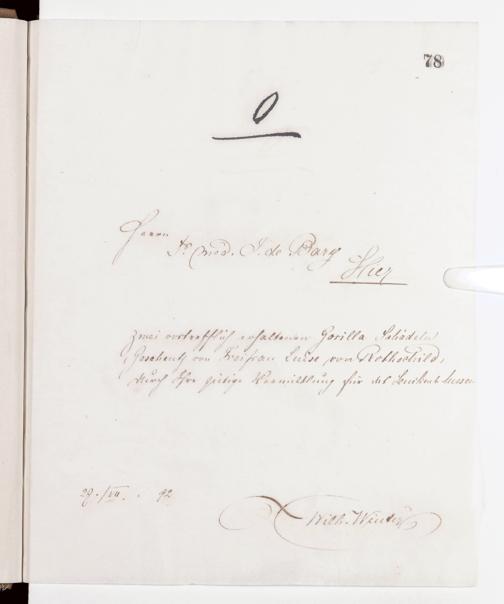 78
O
Herrn
Dr. med. J. de Bary
Hier
Zwei vortrefflich erhaltenen Gorilla Schädeln
Geschenk von Freifrau Luise von Rothschild,
durch Ihre gütige Vermittlung für das Senckenb. Museum
29./VII. 92
Wilh. Winter